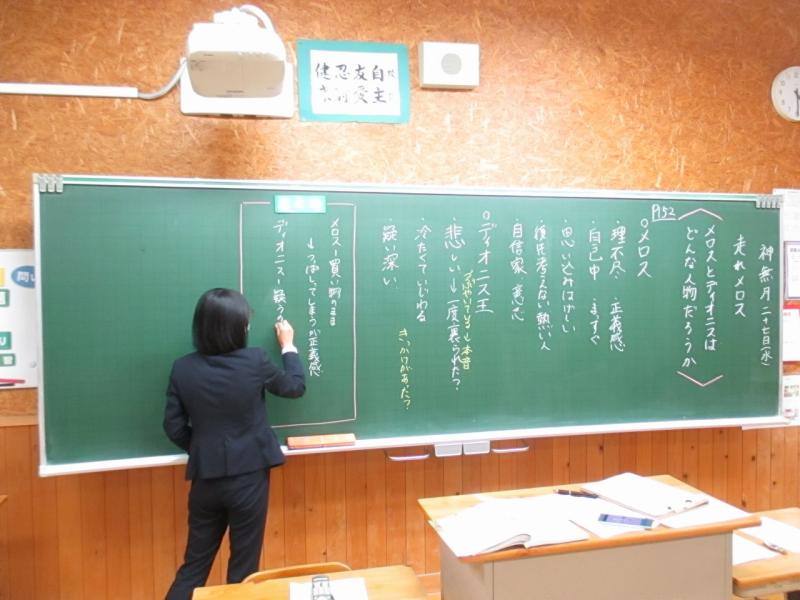 神無月 二十七日(水)
走れメロス
P152
メロスとディオニスは
どんな人物だろうか
○メロス
・理不尽 ・正義感
・自己中 ・まっすぐ
・思い込みはげしい
・後先考えない 熱い人
・自信家
○ディオニス王
つぶやいている→本音
・悲しい→一度裏られた?
・冷たくていじわる
きっかけがあった?
・疑い深い
メロス→買い物のまま
→つぶしてしまうが正義感
ディオニス→疑うの
自主
友愛
忍耐
健康
問い